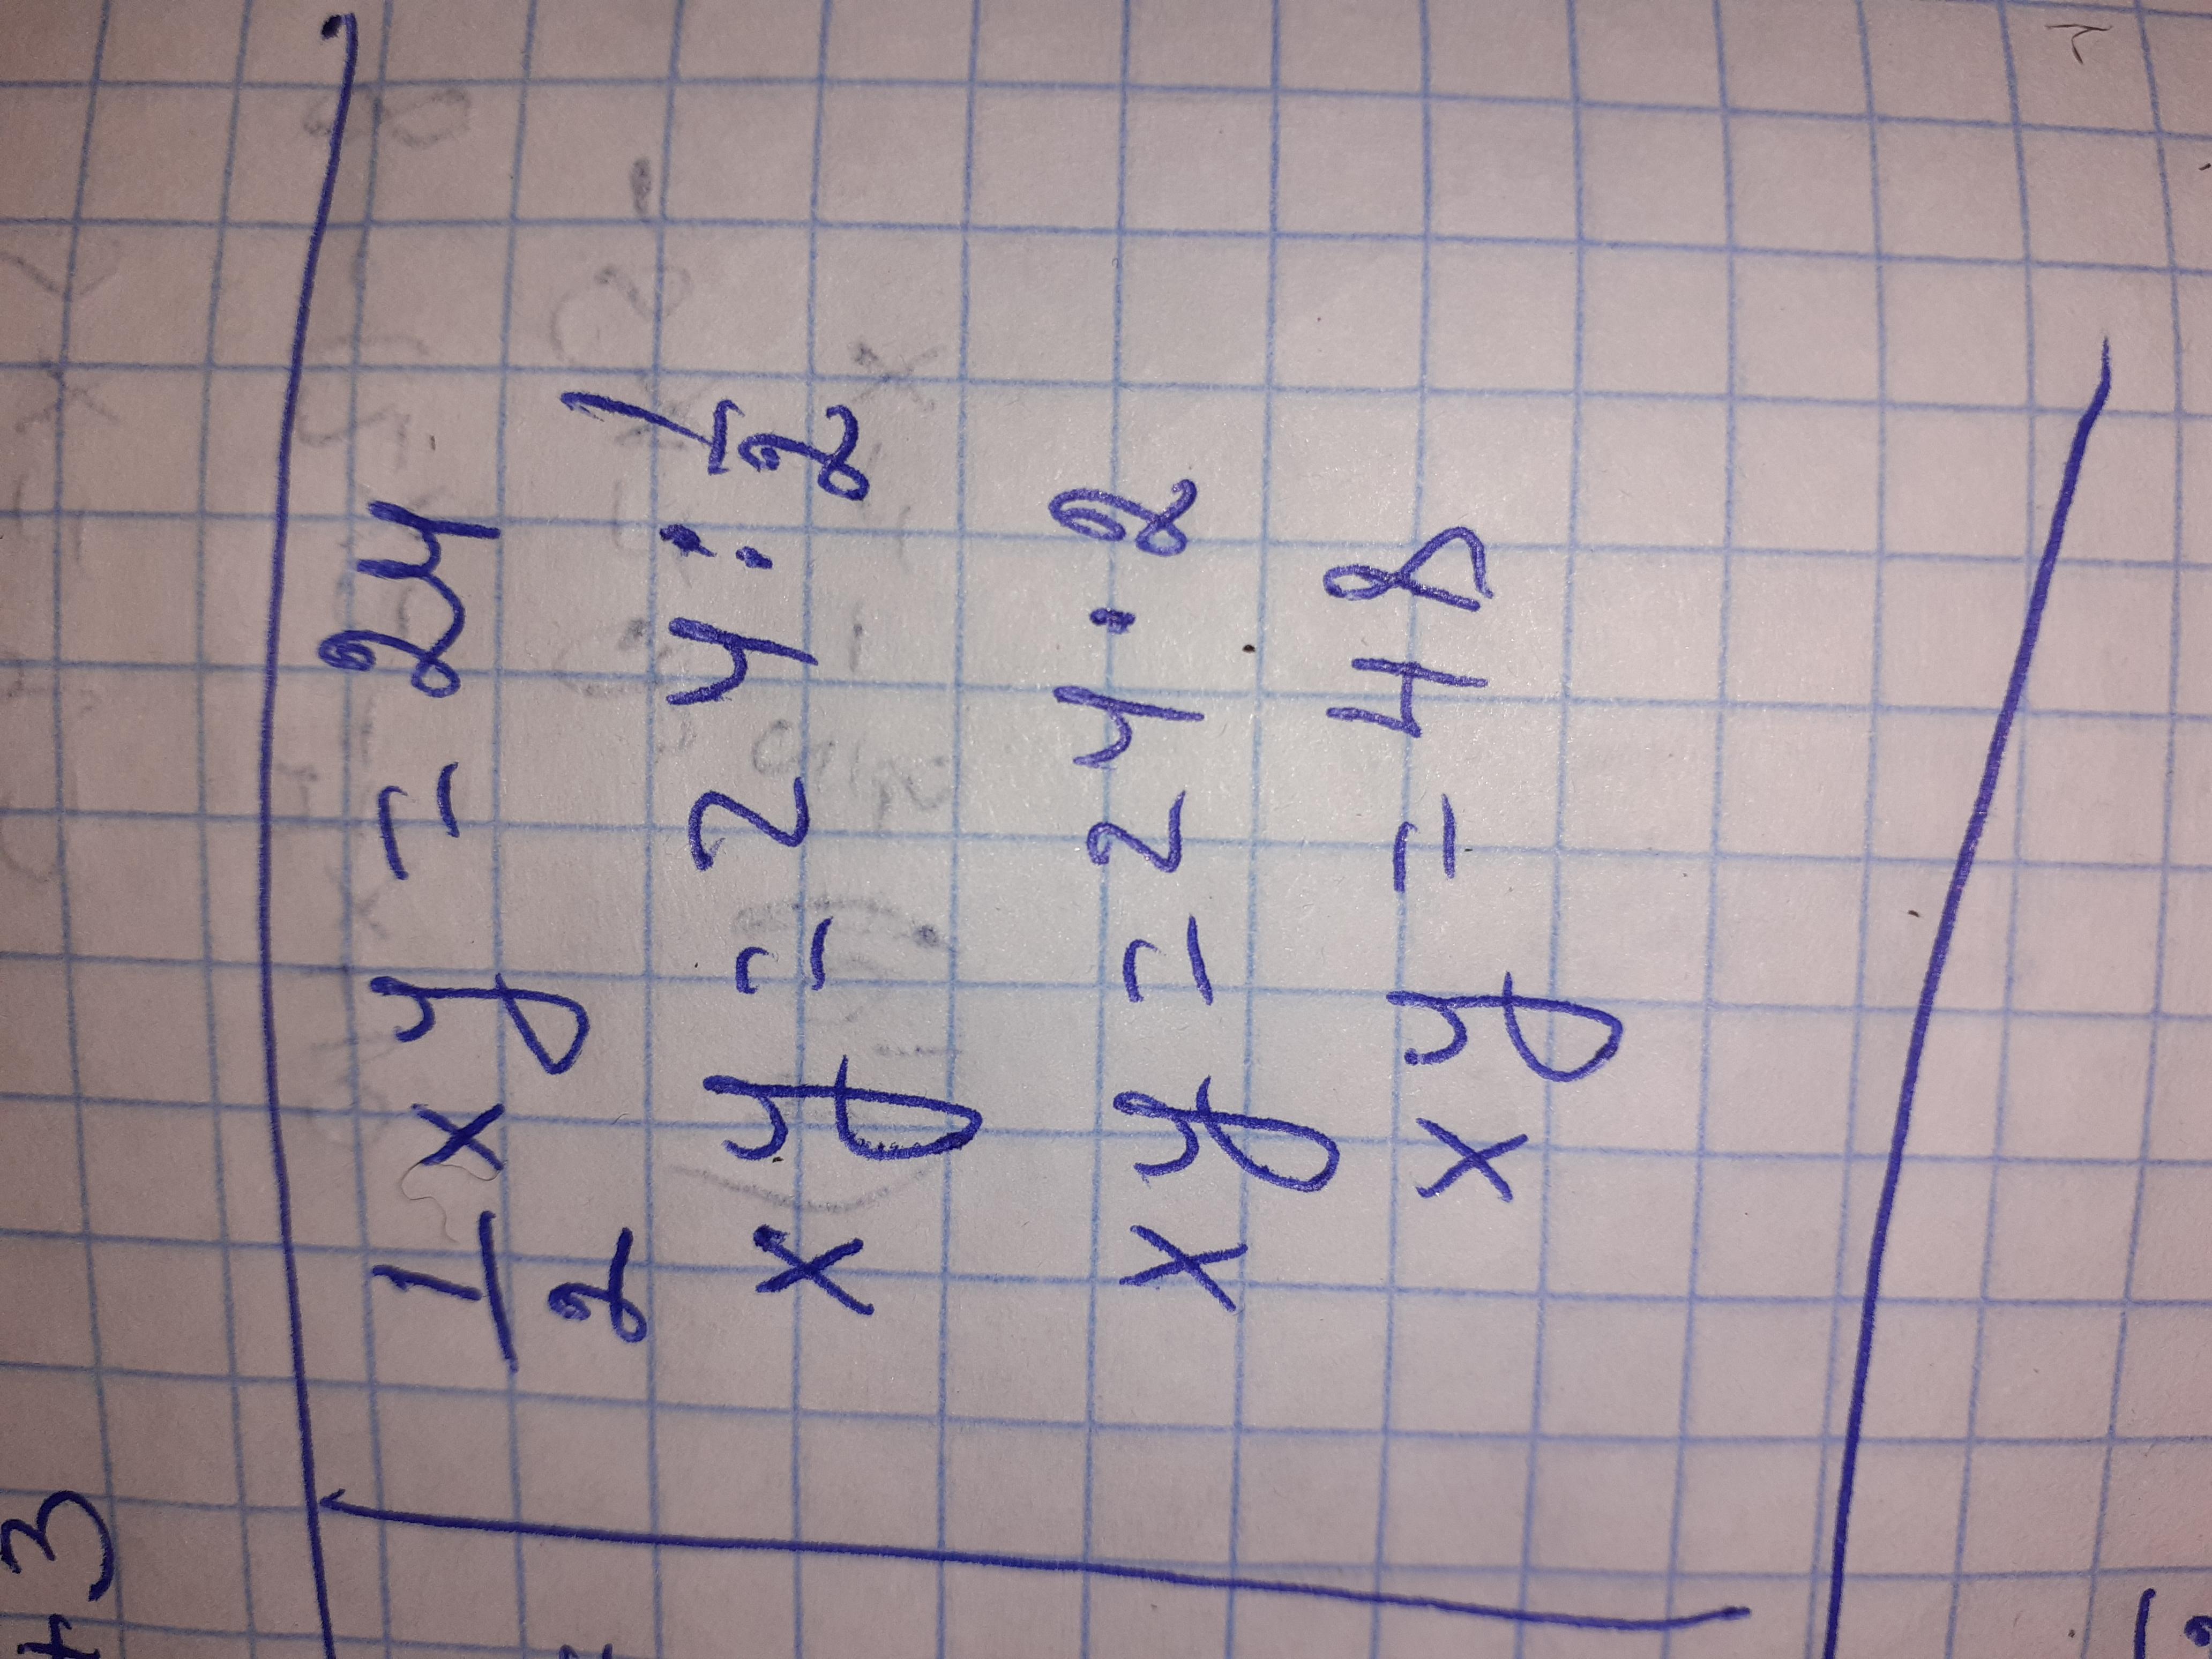 +3
1/2 xy = 24
xy = 24 : 1/2
xy = 24 · 2
xy = 48